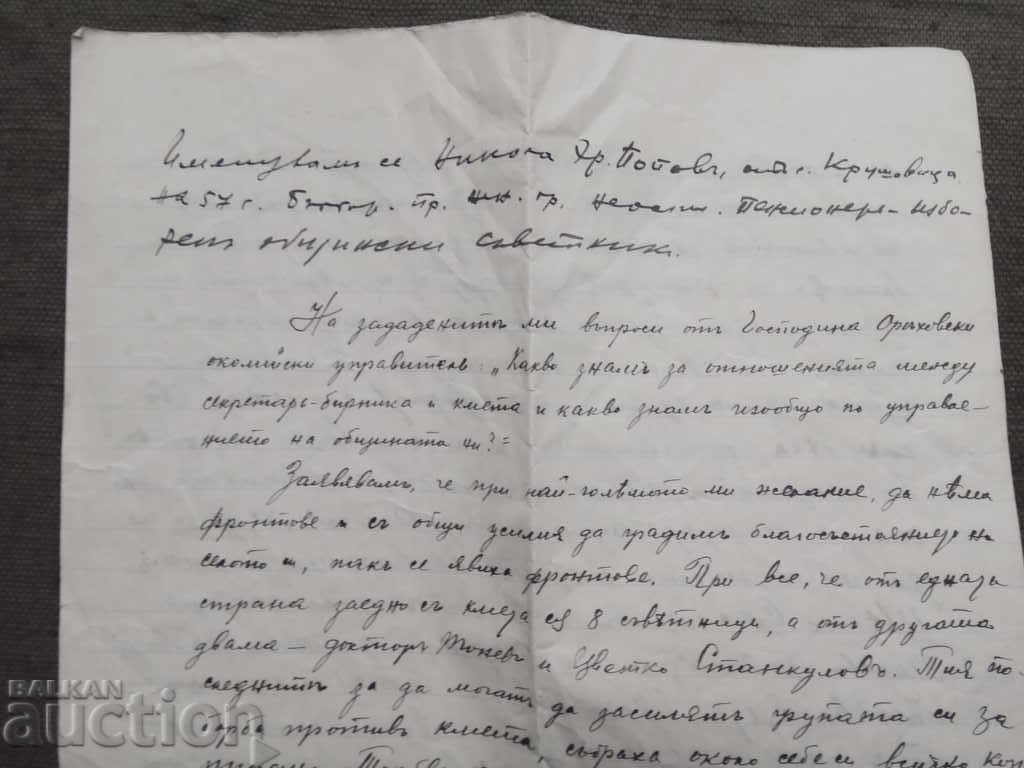 Именувамъ се Никола Хр. Поповъ, отъ с. Крушовица
на 57 г. Българ. пр. жен. гр. неосъж. Пенсионеръ - избо-
ренъ общински съветникъ.
На зададенитѣ ми въпроси отъ Господина Орѣховски
околийски управителъ: „Какво знамъ за отношенията между
секретарь-бирника и кмета и какво знамъ изобщо по управле-
нието на общината ни?"
Заявявамъ, че при най-голѣмото ми желание, да нѣма
фронтове и съ общи усилия да градимъ благосъстоянието на
селото ни, пакъ се явиха фронтове. При все, че отъ едната
страна заедно съ кмета сѫ 8 съвѣтници, а отъ другата
двама - докторъ Тоневъ и Цвѣтко Станкуловъ. Тия по-
следнитѣ за да могатъ да засилятъ групата си за
борба противъ кмета, събраха около себе си всичко
BALKAN
auction